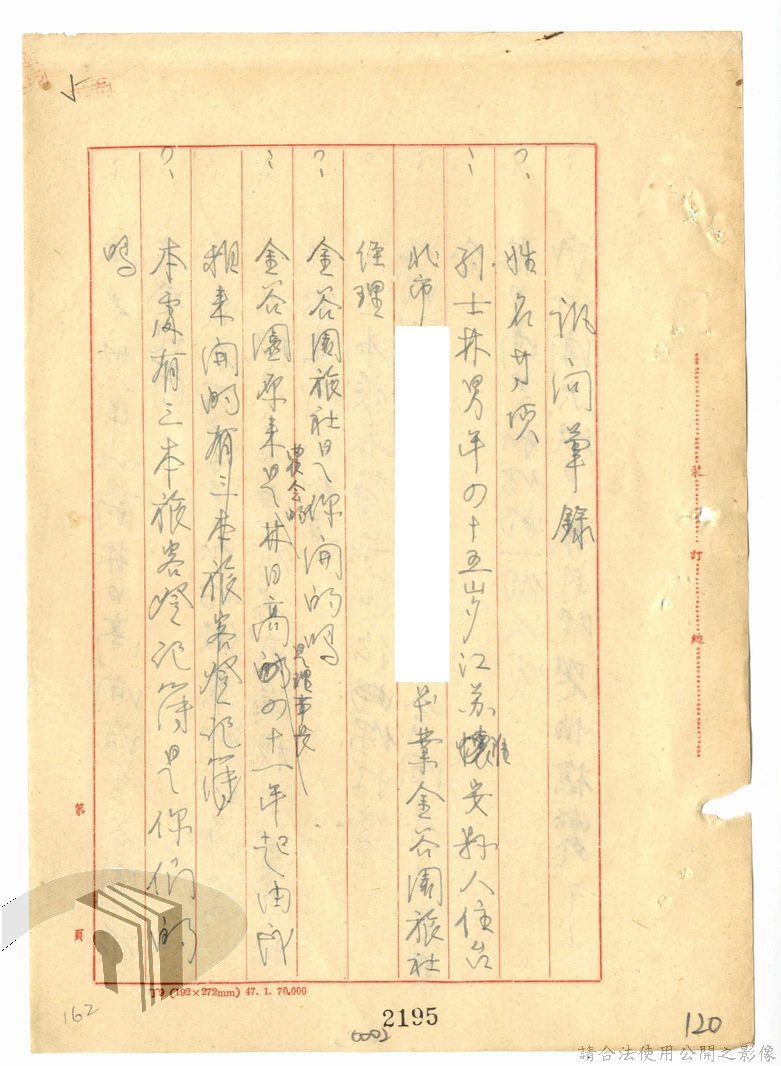 訊問筆錄
?: 姓名等項
: 孫士林男年四十五岁江苏淮安縣人住台
北市 畢業金谷園旅社
経理
?: 金谷園旅社是你開的嗎
: 金谷園原來是林日高農会的是理事長四十一年起由我
租来開的有三本旅客登記簿
?: 本處有三本旅客登記簿是你們的
嗎
裝訂線
第 頁
T9 (192×272mm) 47. 1. 70.000
162
2195
0002
120
請合法使用公開之影像